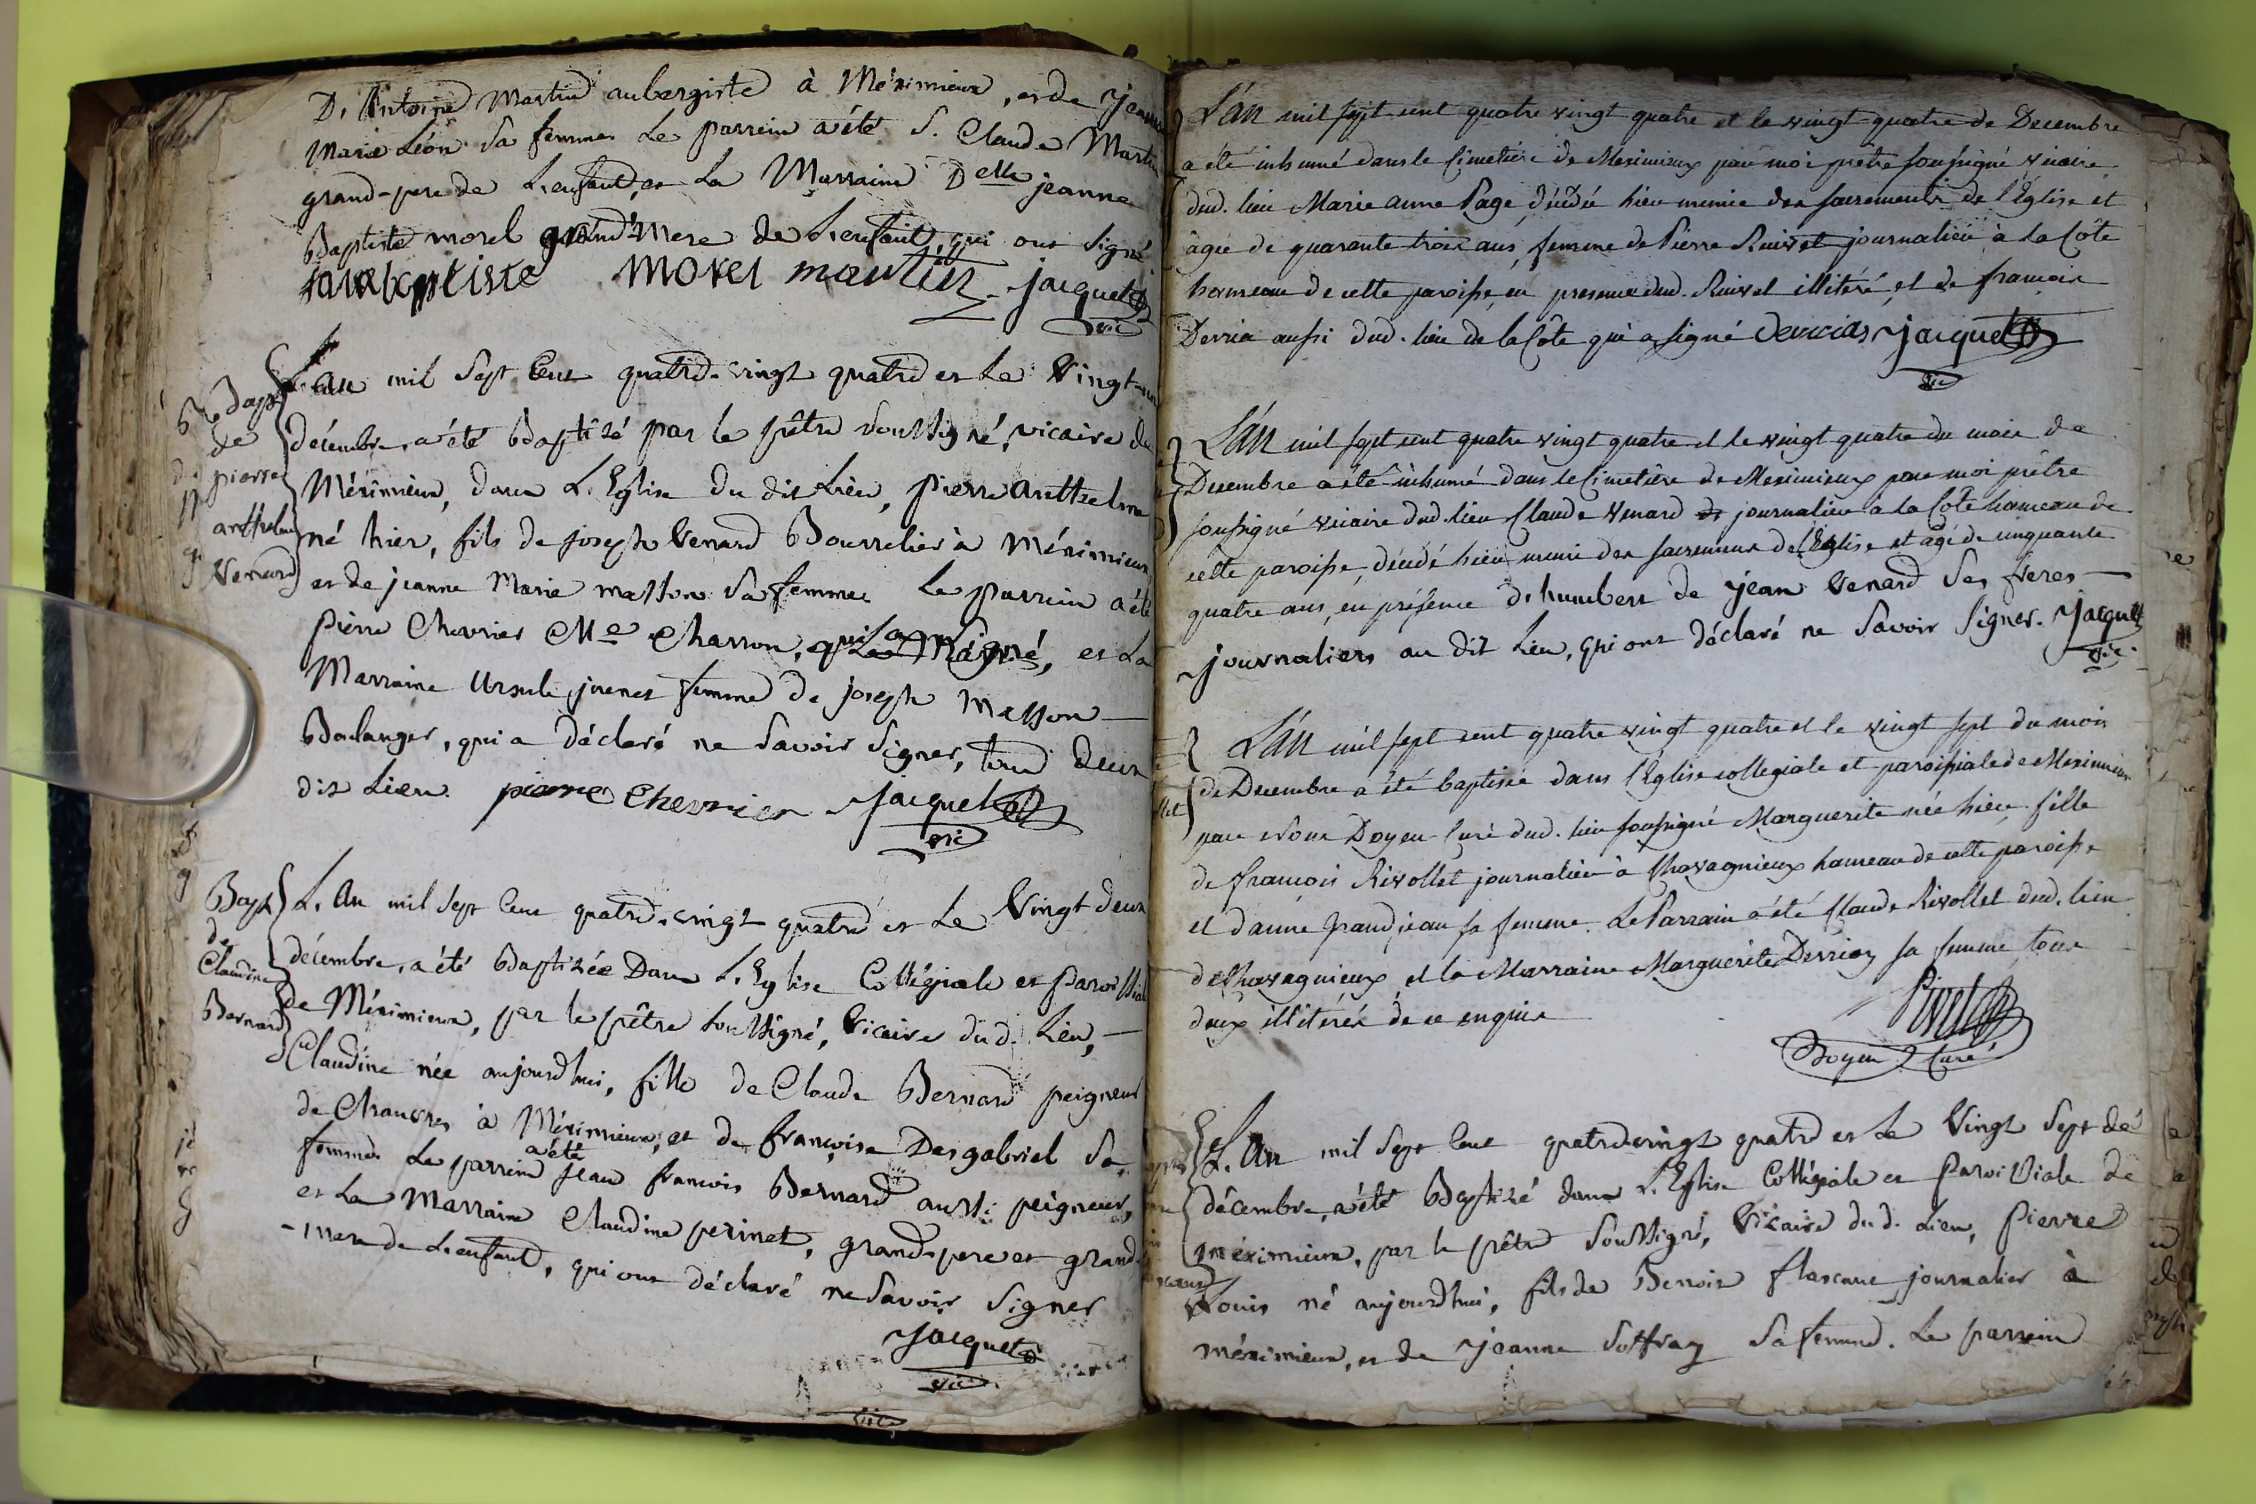 D. Antoine Martin aubergiste à Méximieux, et de Jeanne
Marie Léon sa femme Le parrein a été S. Claude Martin
grand-pere de L'enfant, et La Marraine Delle jeanne
Baptiste morel grand'Mere de L'enfant, qui ont signé
janebaptiste morel martin Jacquet
vic
Bap
de
pierre
anthelme
Venard
L'an mil Sept Cent quatre-vingt quatre et Le Vingt-un
décembre, a été Baptisé par le prêtre soussigné, vicaire de
Méximieux, dans L'Eglise du dit Lieu, pierre anthelme
né hier, fils de joseph Venard Bourrelier à Méximieux
et de jeanne Marie masson sa femme Le parrein a été
pierre Chevrier Me Charron, qui a signé, et La
Marraine Ursule juenet femme de joseph Masson
Boulanger, qui a déclaré ne savoir signer, tous deux
dit Lieu. pierre Chevrier Jacquet
vic
Bapt
de
Claudine
Bernard
L'An mil Sept Cent quatre-vingt quatre et Le Vingt deux
décembre, a été Baptisée Dans L'Eglise Collégiale et Paroissiale
de Méximieux, par le prêtre soussigné, Vicaire dud. Lieu,
Claudine née aujourdhui, fille de Claude Bernard peigneur
de Chanvres à Méximieux, et de françoise Desgabriel Sa
a été
femme Le parrein Jean francois Bernard aussi peigneur,
et La Marraine Claudine perinet, grand-pere et grand-
-mere de L'enfant, qui ont déclaré ne savoir signer
Jacquet
vic
vic
L'An mil sept cent quatre vingt quatre et le vingt quatre de Decembre
a été inhumé dans le Cimetiere de Meximieux par moi prêtre soussigné vicaire
dud. lieu Marie anne Page décédée hier munie des sacrements de l'Église et
âgée de quarante trois ans, femme de Pierre Ruivet journalier à la Côte
hameau de cette paroisse, en presence dud. Ruivet illitéré, et de francois
Derria aussi dud. lieu de la Côte qui a signé Derrias Jacquet
vic
L'An mil sept cent quatre vingt quatre et le vingt quatre du mois de
Decembre a été inhumé dans le Cimetière de Meximieux par moi prêtre
soussigné vicaire dud. lieu Claude Venard de journalier à la Côte hameau de
cette paroisse, décédé hier muni des sacremens de l'Église et âgé de cinquante
quatre ans, en présence d'humbert de Jean Venard Ses freres
journaliers au dit Lieu, qui ont déclaré ne savoir signer. Jacquet
vic.
L'An mil sept cent quatre vingt quatre et le vingt sept du mois
de Decembre a été baptisée dans l'Église collegiale et paroissiale de Meximieux
par Nous Doyen Curé dud. lieu soussigné Marguerite née hier, fille
de francois Rivollet journalier à Chavagnieux hameau de cette paroisse
et d'anne grandjean sa femme. Le Parrain a été Claude Rivollet dud. lieu
de Chavagnieux et la Marraine Marguerite Derrias sa femme, tous
deux illitérés de ce enquis
Doyen Curé
L'An mil Sept Cent quatre vingt quatre et Le Vingt Sept dé
décembre, a été Baptisé dans L'Eglise Collégiale et Paroissiale de
méximieux, par le prêtre soussigné, Vicaire dud. Lieu, pierre
Louis né aujourdhui, fils de Benoit flascour journalier à
méximieux, et de Jeanne Soffray Sa femme. Le parrein